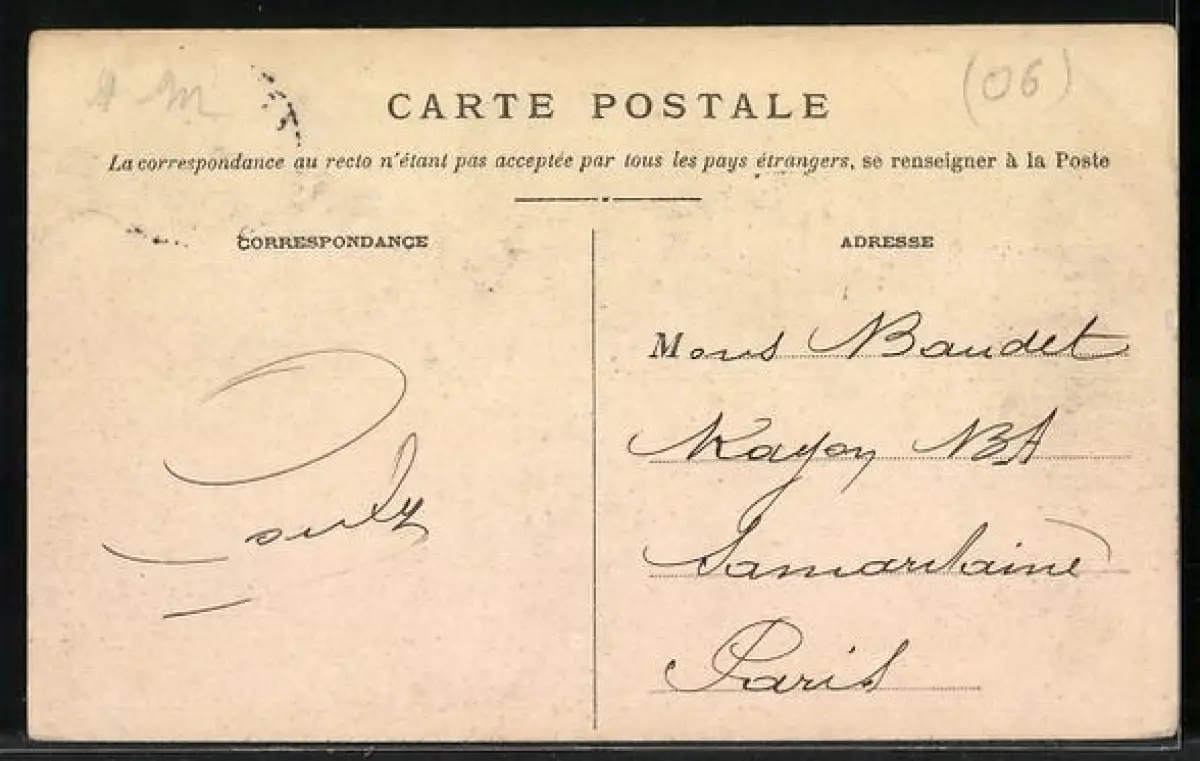 A M
(06)
CARTE POSTALE
La correspondance au recto n'étant pas acceptée par tous les pays étrangers, se renseigner à la Poste
CORRESPONDANCE
ADRESSE
Mons Baudet
Rayon NBA
Samaritaine
Paris